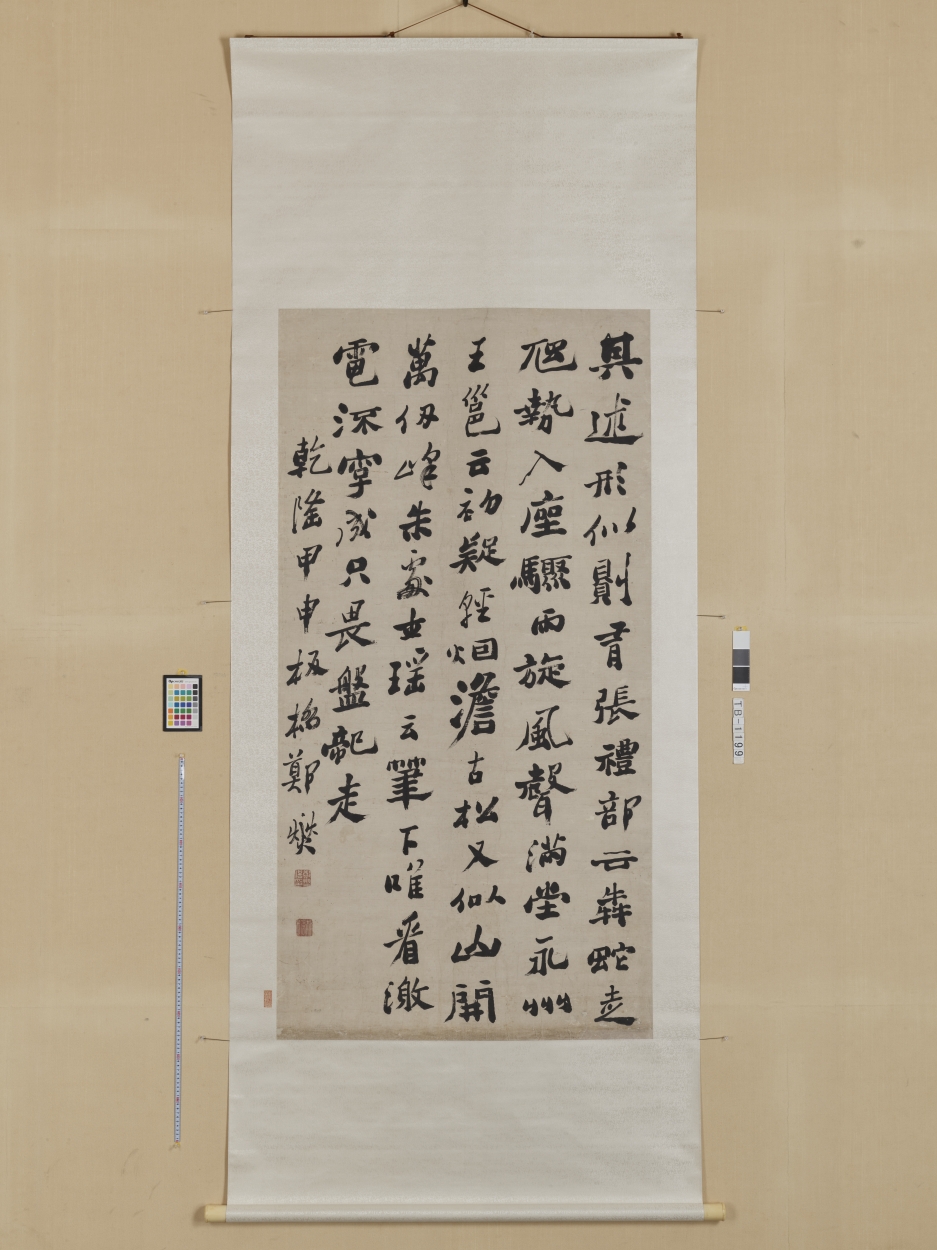 其述形似則有張禮部云奔蛇走
虺勢入座驟雨旋風聲滿堂永州
王邕云初疑輕烟澹古松又似山開
萬仞峰朱處士瑶云筆下唯看激
電流字成只畏盤龍走
乾隆甲申板橋鄭燮
TB-1199